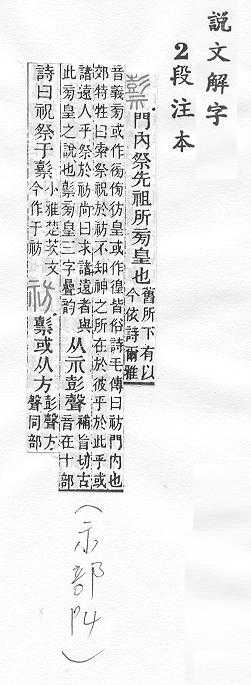 說文解字
2段注本
𥛱 門內祭先祖所㫄皇也 舊所下有以今依詩爾雅
音義㫄或作徬彷皇或作徨皆俗詩毛傳曰祊門內也
郊特牲曰索祭祝於祊不知神之所在於彼乎於此乎或
諸遠人乎祭於祊尚曰求諸遠者與
此㫄皇之說也𥛱㫄皇三字疊韵
从示彭聲 補盲切古音在十部
詩曰祝祭于𥛱 小雅楚茨文今作于祊
祊 𥛱或从方 彭聲方聲同部
(示部P4)